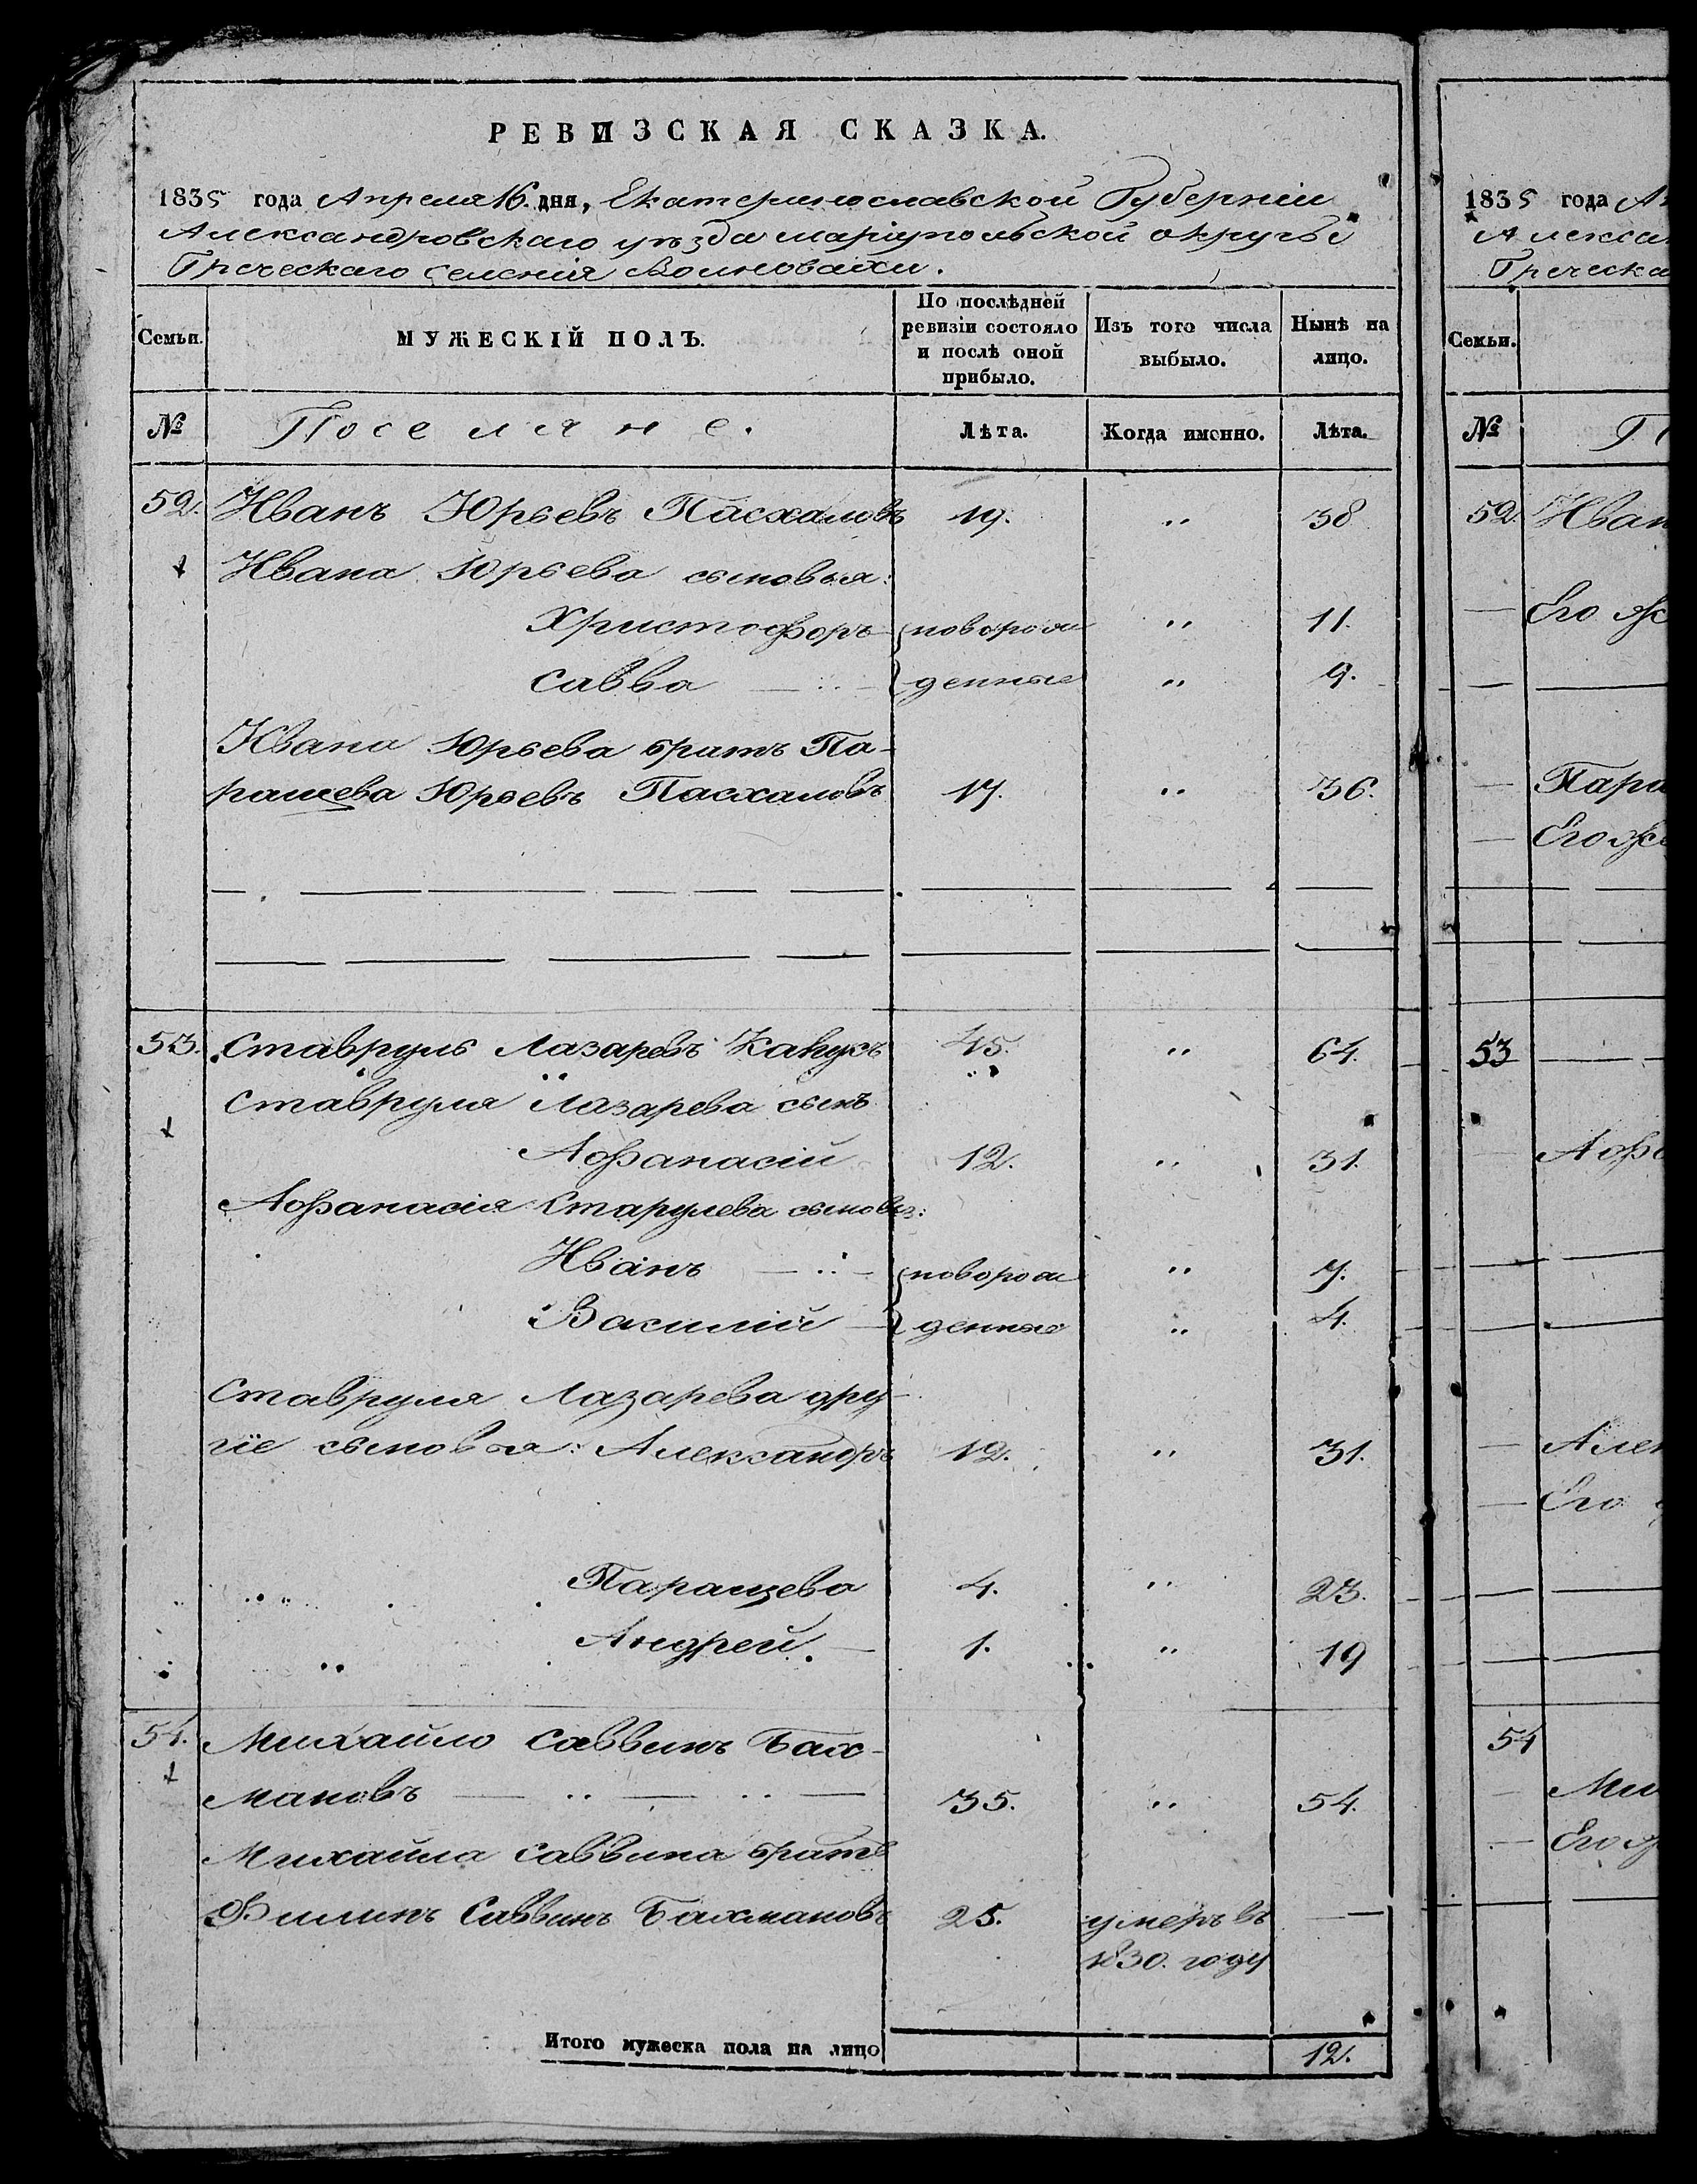 РЕВИЗСКАЯ СКАЗКА.
1835 года Апреля 16. дня, Екатеринославской Губерніи
Александровскаго уѣзда маріупольской округи
Греческаго селенія Волновахи.
Семьи. МУЖЕСКІЙ ПОЛЪ. По послѣдней ревизіи состояло и послѣ оной прибыло. Изъ того числа выбыло. Нынѣ на лицо.
№ Поселяне. Лѣта. Когда именно. Лѣта.
52. Иванъ Юрьевъ Пасхаловъ 19. „ 38
Ивана Юрьева сыновья:
Христофоръ новорож „ 11.
Савва денные „ 9.
Ивана Юрьева братъ Па-
рашева Юрьевъ Пасхаловъ 17. „ 36.
53. Ставруль Лазаревъ 45. „ 64.
Ставруля Лазарева сынъ
Афанасій 12. „ 31.
Афанасія Старулева сыновья:
Иванъ новорож „ 7.
Василій денные „ 4.
Ставруля Лазарева дру-
гіе сыновья: Александръ 12. „ 31.
Паращева 4. „ 23.
Андрей. 1. „ 19
54. Михайло Саввинъ Бах-
мановъ 35. „ 54.
Михайла Саввина братъ
Филипъ Саввинъ Бахмановъ 25. умеръ въ —
1830. году
Итого мужеска пола на лицо 12.
1835 года
Алекса
Греческа
Семьи.
№
52. Иван
Его ж
Пара
Его же
53
Афа
Алек
Его
54
Ми
Его ж